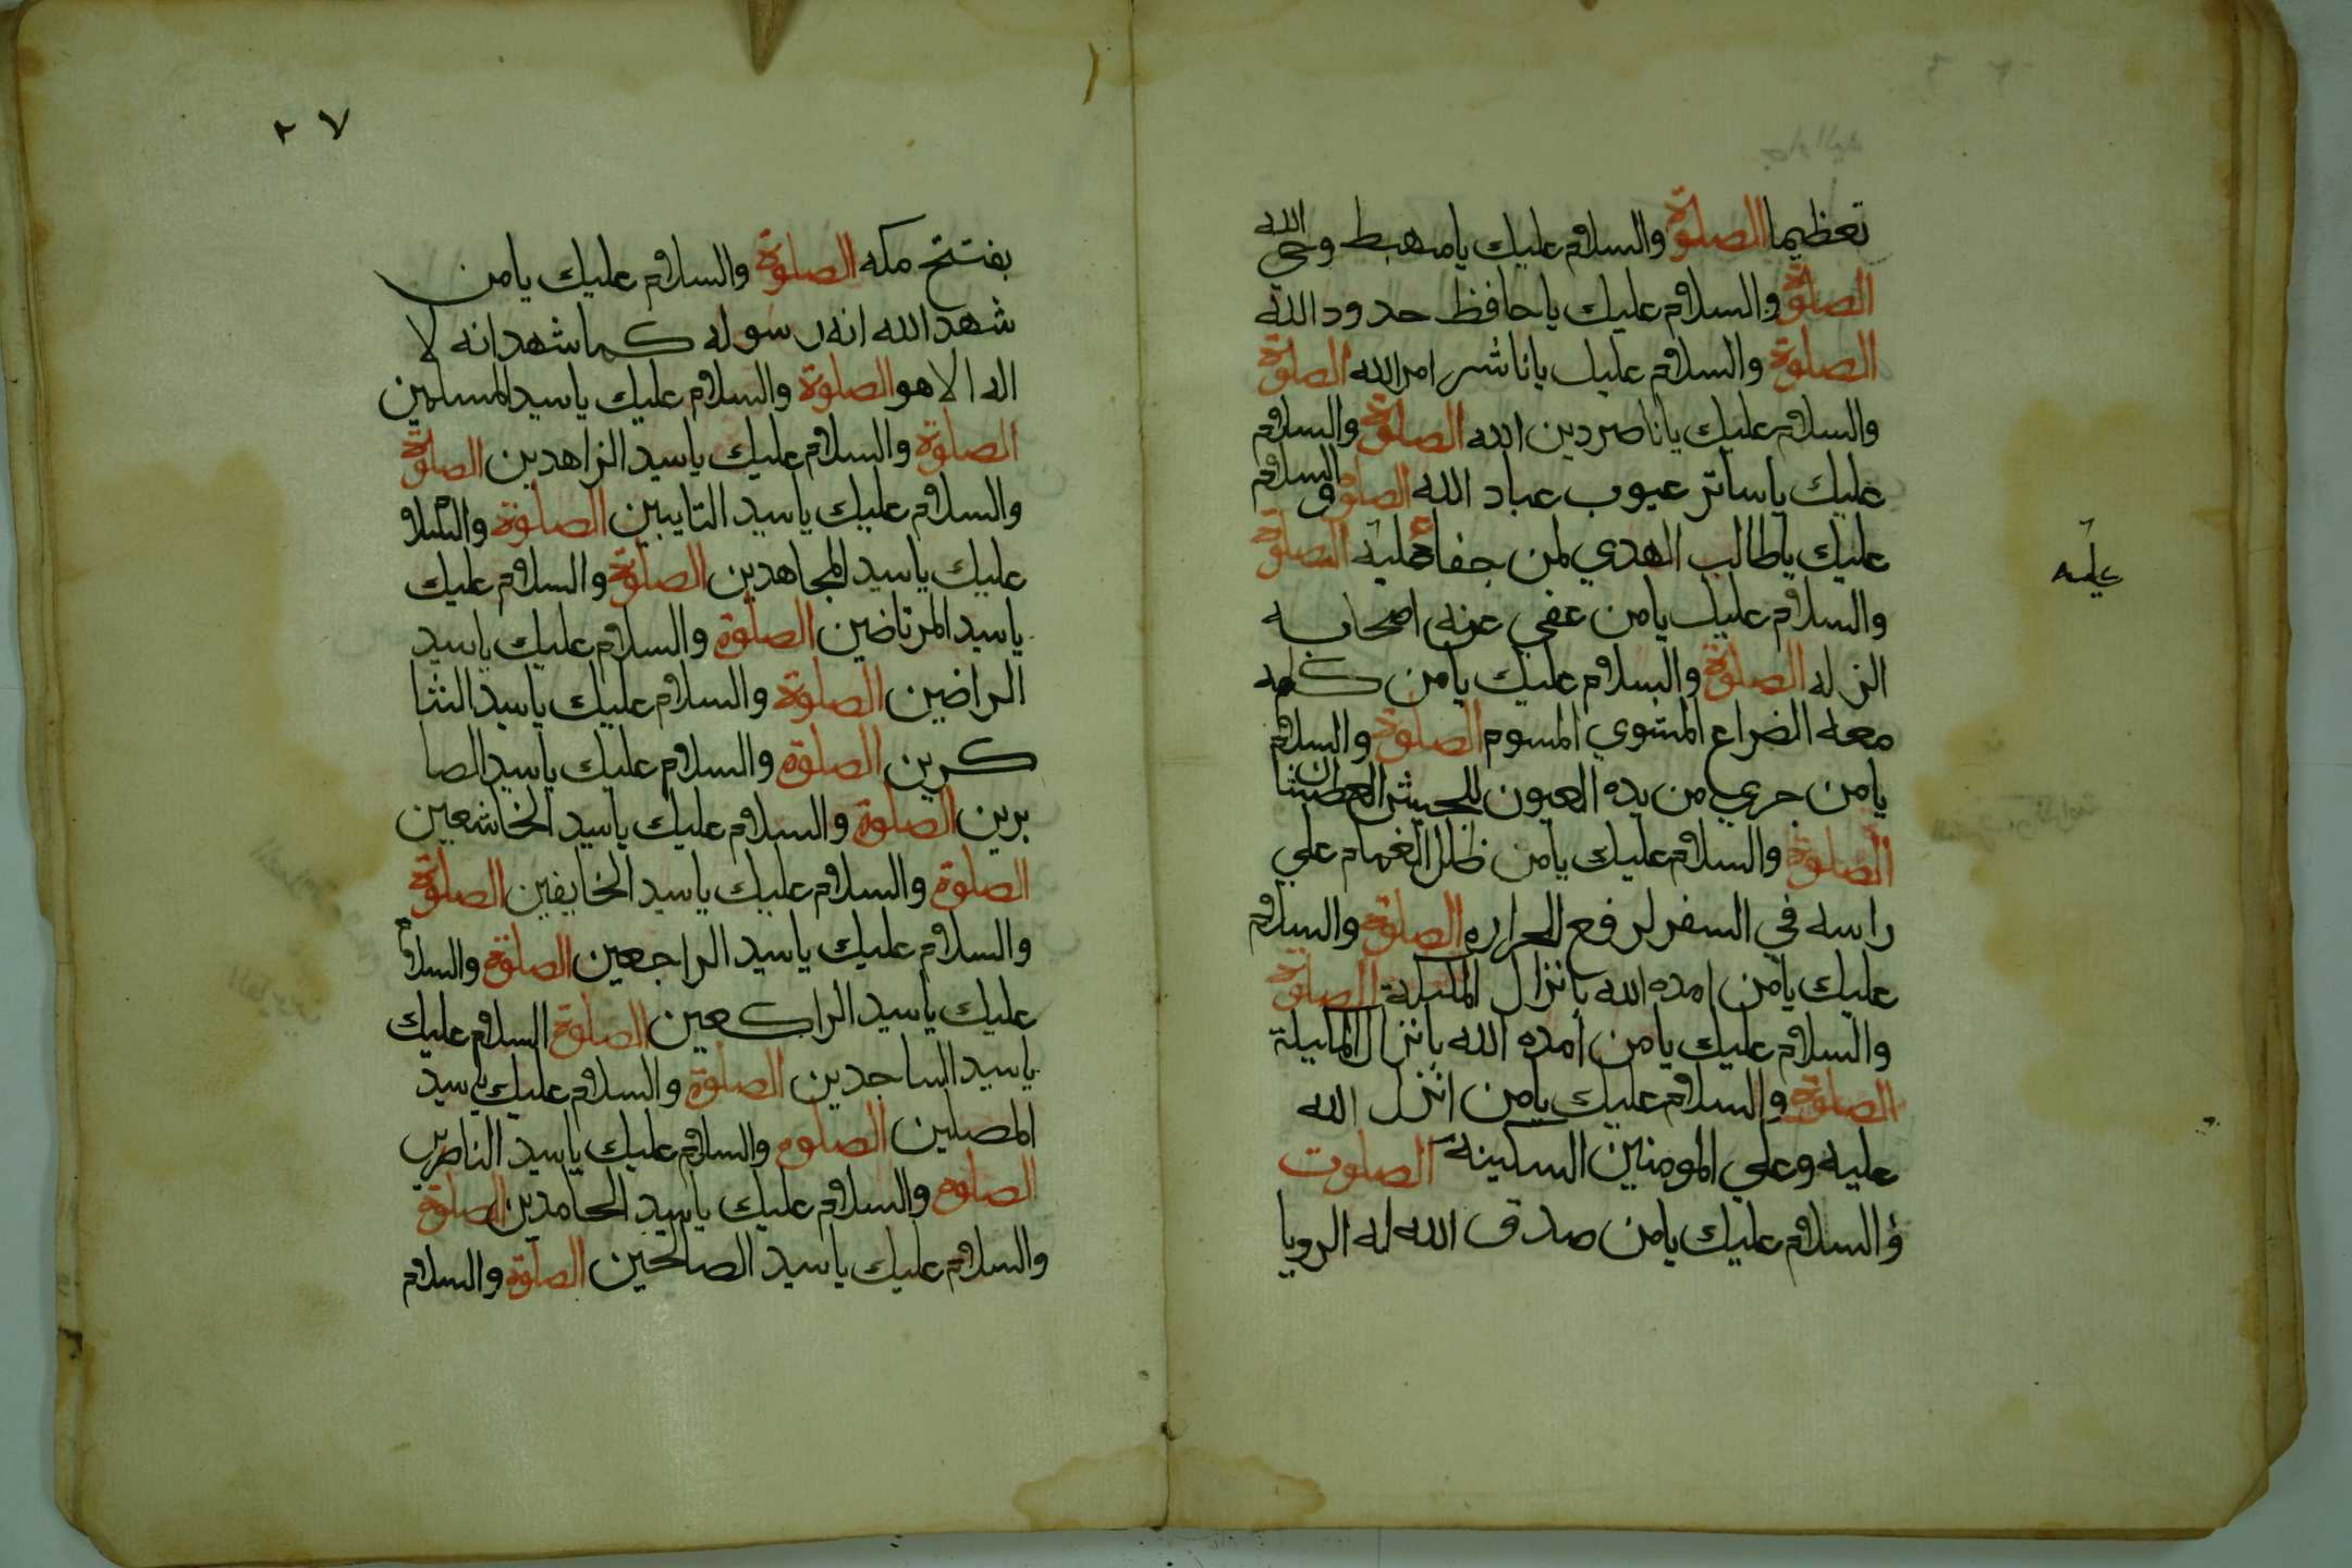 تعظيما الصلوة والسلام عليك يا مهبط وحي الله
الصلوة والسلام عليك يا حافظ حدود الله
الصلوة والسلام عليك يا ناشر امر الله الصلوة
والسلام عليك يا ناصر دين الله الصلوة والسلام
عليك يا ساتر عيوب عباد الله الصلوة والسلام
عليك يا طالب الهدي لمن جفا عليه الصلوة
عليه
والسلام عليك يا من عفي عنه اصحابه
الزله الصلوة والسلام عليك يا من كلمه
معه الضراع المشوي المسوم الصلوة والسلام
يا من جري من يده العيون للجيش العطشان
الصلوة والسلام عليك يا من ظلل الغمام علي
راسه في السفر لرفع الحراره الصلوة والسلام
عليك يا من امده الله بانزال الملىكة الصلوة
والسلام عليك يا من امده الله بانزال الملىيلة
الصلوة والسلام عليك يا من انزل الله
عليه وعلي المومنين السكينة الصلوت
والسلام عليك يا من صدق الله له الرويا
٢٧
بفتتح مكه الصلوة والسلام عليك يا من
شهد الله انه رسوله كما شهد انه لا
اله الا هو الصلوة والسلام عليك يا سيد المسلمين
الصلوة والسلام عليك يا سيد الزاهدين الصلوة
والسلام عليك يا سيد التايبين الصلوة والسلام
عليك يا سيد المجاهدين الصلوة والسلام عليك
يا سيد المرتاضين الصلوة والسلام عليك يا سيد
الراضين الصلوة والسلام عليك يا سيد الشا
كرين الصلوة والسلام عليك يا سيد الصا
برين الصلوة والسلام عليك يا سيد الخاشعين
الصلوة والسلام عليك يا سيد الخايفين الصلوة
والسلام عليك يا سيد الراجعين الصلوة والسلام
عليك يا سيد الراكعين الصلوة السلام عليك
يا سيد الساجدين الصلوة والسلام عليك يا سيد
المصلين الصلوه والسلام عليك يا سيد الناصرين
الصلوه والسلام عليك يا سيد الحامدين الصلوة
والسلام عليك يا سيد الصالحين الصلوة والسلام